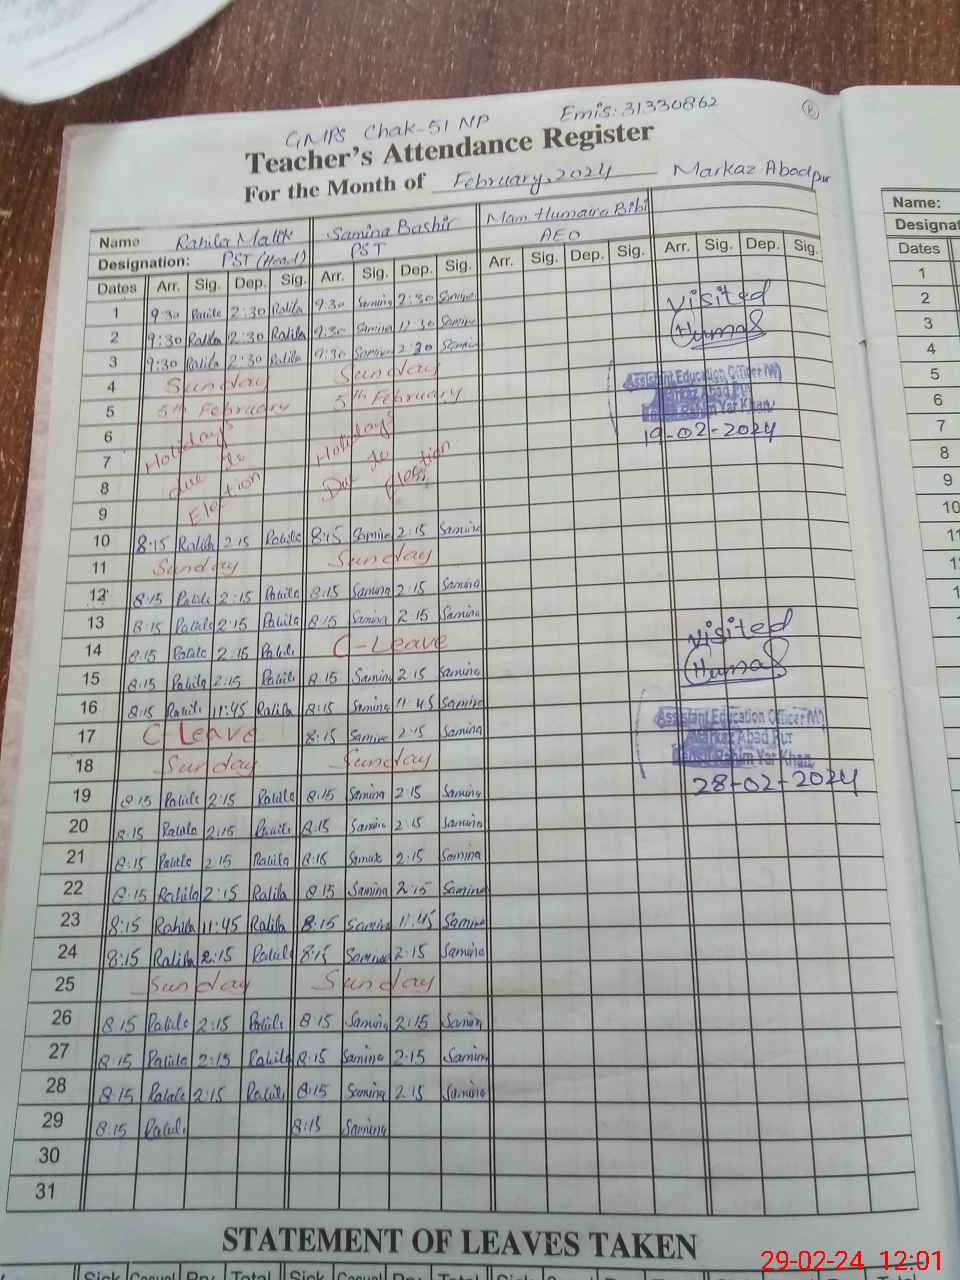 GMPS Chak-51 NP Emis: 31330862
Teacher's Attendance Register
For the Month of February, 2024 Markaz Abadpur
Name Rahila Malik Samina Bashir Mam Humaira Bibi
Designation: PST (Head) PST AEO
Dates Arr. Sig. Dep. Sig. Arr. Sig. Dep. Sig. Arr. Sig. Dep. Sig. Arr. Sig. Dep. Sig.
1 9:30 Rahila 2:30 Rahila 9:30 Samina 2:30 Samina
2 9:30 Rahila 2:30 Rahila 9:30 Samina 30 Samina
3 9:30 Rahila 2:30 Rahila 9:30 Samina 2:30 Samina
4 Sunday Sunday
5 5th February 5th February
6
7 Holidays Holidays
8 due to Due to
9 Election Election
10 8:15 Rahila 2:15 Rahila 8:15 Samina 2:15 Samina
11 Sunday Sunday
12 8:15 Rahila 2:15 Rahila 8:15 Samina 2:15 Samina
13 8:15 Rahila 2:15 Rahila 8:15 Samina 2:15 Samina
14 8:15 Rahila 2:15 Rahila C-Leave
15 8:15 Rahila 2:15 Rahila 8:15 Samina 2:15 Samina
16 8:15 Rahila 11:45 Rahila 8:15 Samina 11:45 Samina
17 C-Leave 8:15 Samina 2:15 Samina
18 Sunday Sunday
19 8:15 Rahila 2:15 Rahila 8:15 Samina 2:15 Samina
20 8:15 Rahila 2:15 Rahila 8:15 Samina 2:15 Samina
21 8:15 Rahila 2:15 Rahila 8:15 Samina 2:15 Samina
22 8:15 Rahila 2:15 Rahila 8:15 Samina 2:15 Samina
23 8:15 Rahila 11:45 Rahila 8:15 Samina 11:45 Samina
24 8:15 Rahila 2:15 Rahila 8:15 Samina 2:15 Samina
25 Sunday Sunday
26 8:15 Rahila 2:15 Rahila 8:15 Samina 2:15 Samina
27 8:15 Rahila 2:15 Rahila 8:15 Samina 2:15 Samina
28 8:15 Rahila 2:15 Rahila 8:15 Samina 2:15 Samina
29 8:15 Rahila 8:15 Samina
30
31
Visited
Huma
Assistant Education Officer (W)
Markaz Abad Pur
Rahim Yar Khan
19-02-2024
Visited
Huma
Assistant Education Officer (W)
Markaz Abad Pur
Rahim Yar Khan
28-02-2024
STATEMENT OF LEAVES TAKEN
Sick Casual Total Sick Casual Total
Name:
Dates
1
2
3
4
5
6
7
8
9
10
29-02-24 12:01